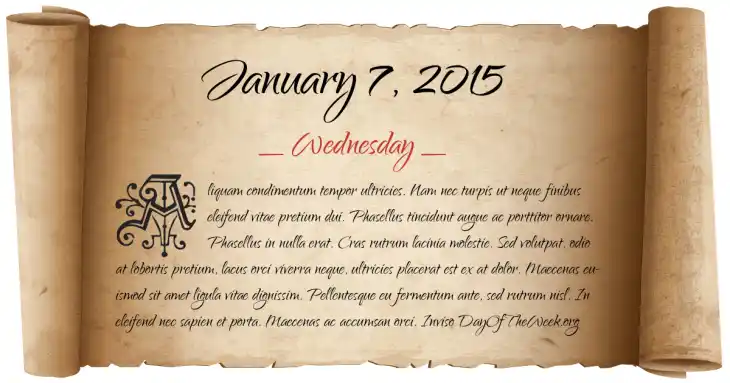 January 7, 2015
_ Wednesday _
Aliquam condimentum tempor ultricies. Nam nec turpis ut neque finibus
eleifend vitae pretium dui. Phasellus tincidunt augue ac porttitor ornare.
Phasellus in nulla erat. Cras rutrum lacinia molestie. Sed volutpat, odio
at lobortis pretium, lacus orci viverra neque, ultricies placerat est ex at dolor. Maecenas eu-
ismod sit amet ligula vitae dignissim. Pellentesque eu fermentum ante, sed rutrum nisl. In
eleifend nec sapien et porta. Maecenas ac accumsan orci. Inviso DayOfTheWeek.org